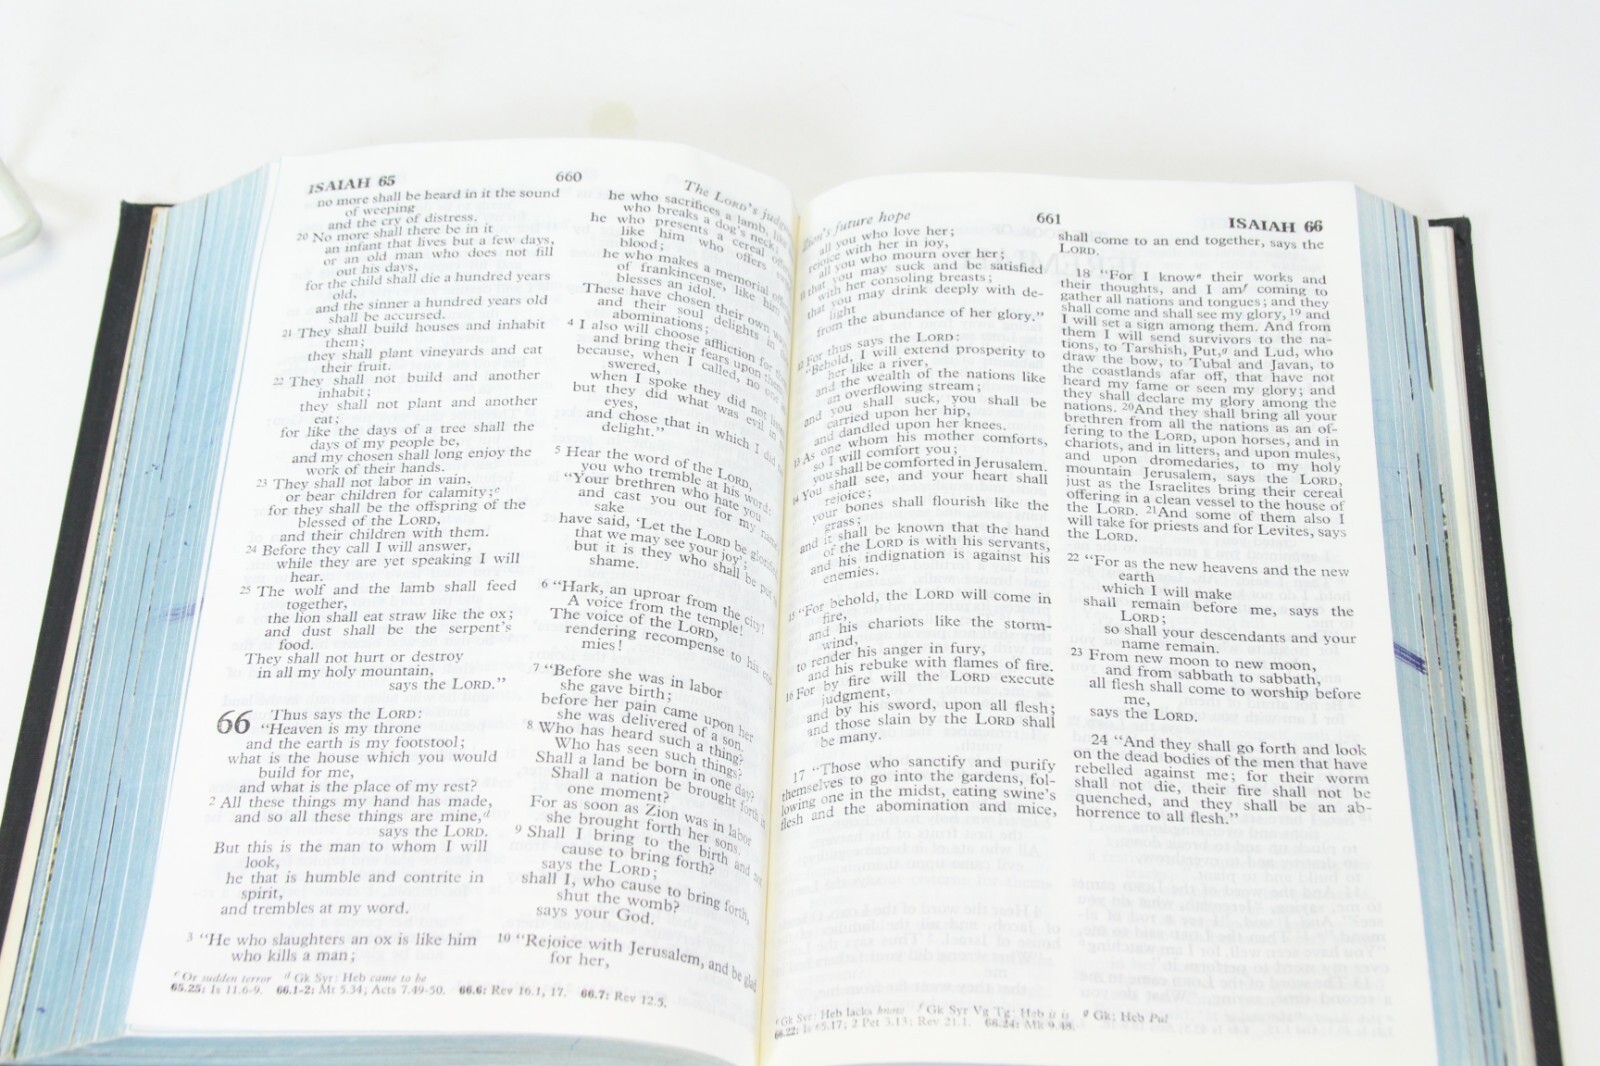 ISAIAH 65
660
The LORD's
no more shall be heard in it the sound
of weeping
and the cry of distress.
20 No more shall there be in it
an infant that lives but a few days,
or an old man who does not fill
out his days,
for the child shall die a hundred years
old,
and the sinner a hundred years old
shall be accursed.
21 They shall build houses and inhabit
them;
they shall plant vineyards and eat
their fruit.
22 They shall not build and another
inhabit;
they shall not plant and another
eat;
for like the days of a tree shall the
days of my people be,
and my chosen shall long enjoy the
work of their hands.
23 They shall not labor in vain,
or bear children for calamity;c
for they shall be the offspring of the
blessed of the LORD,
and their children with them.
24 Before they call I will answer,
while they are yet speaking I will
hear.
25 The wolf and the lamb shall feed
together,
the lion shall eat straw like the ox;
and dust shall be the serpent's
food.
They shall not hurt or destroy
in all my holy mountain,
says the LORD."
66 Thus says the LORD:
"Heaven is my throne
and the earth is my footstool;
what is the house which you would
build for me,
and what is the place of my rest?
2 All these things my hand has made,
and so all these things are mine,d
says the LORD.
But this is the man to whom I will
look,
he that is humble and contrite in
spirit,
and trembles at my word.
3 "He who slaughters an ox is like him
who kills a man;
he who sacrifices a lamb, like
who breaks a dog's neck;
he who presents a cereal
like him who offers
blood;
he who makes a memorial
of frankincense, like him
blesses an idol.
These have chosen their own
and their soul delights in
abominations;
4 I also will choose affliction for
and bring their fears upon them;
because, when I called, no one
swered,
when I spoke they did not
but they did what was evil in
eyes,
and chose that in which I did
delight."
5 Hear the word of the LORD,
you who tremble at his word:
"Your brethren who hate you
and cast you out for my name's
sake
have said, 'Let the LORD be glorified,
that we may see your joy';
but it is they who shall be put to
shame.
6 "Hark, an uproar from the city!
A voice from the temple!
The voice of the LORD,
rendering recompense to his
mies!
7 "Before she was in labor
she gave birth;
before her pain came upon her
she was delivered of a son.
8 Who has heard such a thing?
Who has seen such things?
Shall a land be born in one day?
Shall a nation be brought forth in
one moment?
For as soon as Zion was in labor
she brought forth her sons.
9 Shall I bring to the birth and not
cause to bring forth?
says the LORD;
shall I, who cause to bring forth,
shut the womb?
says your God.
10 "Rejoice with Jerusalem, and be glad
for her,
c Or sudden terror d Gk Syr: Heb came to be
65.25: Is 11.6-9. 66.1-2: Mt 5.34; Acts 7.49-50. 66.6: Rev 16.1, 17. 66.7: Rev 12.5.
Zion's future hope
661
ISAIAH 66
all you who love her;
rejoice with her in joy,
all you who mourn over her;
11 that you may suck and be satisfied
with her consoling breasts;
that you may drink deeply with de-
light
from the abundance of her glory."
12 For thus says the LORD:
"Behold, I will extend prosperity to
her like a river,
and the wealth of the nations like
an overflowing stream;
and you shall suck, you shall be
carried upon her hip,
and dandled upon her knees.
13 As one whom his mother comforts,
so I will comfort you;
you shall be comforted in Jerusalem.
14 You shall see, and your heart shall
rejoice;
your bones shall flourish like the
grass;
and it shall be known that the hand
of the LORD is with his servants,
and his indignation is against his
enemies.
15 "For behold, the LORD will come in
fire,
and his chariots like the storm-
wind,
to render his anger in fury,
and his rebuke with flames of fire.
16 For by fire will the LORD execute
judgment,
and by his sword, upon all flesh;
and those slain by the LORD shall
be many.
17 "Those who sanctify and purify
themselves to go into the gardens, fol-
lowing one in the midst, eating swine's
flesh and the abomination and mice,
shall come to an end together, says the
LORD.
18 "For I knowe their works and
their thoughts, and I amf coming to
gather all nations and tongues; and they
shall come and shall see my glory, 19 and
I will set a sign among them. And from
them I will send survivors to the na-
tions, to Tarshish, Put,g and Lud, who
draw the bow, to Tubal and Javan, to
the coastlands afar off, that have not
heard my fame or seen my glory; and
they shall declare my glory among the
nations. 20And they shall bring all your
brethren from all the nations as an of-
fering to the LORD, upon horses, and in
chariots, and in litters, and upon mules,
and upon dromedaries, to my holy
mountain Jerusalem, says the LORD,
just as the Israelites bring their cereal
offering in a clean vessel to the house of
the LORD. 21And some of them also I
will take for priests and for Levites, says
the LORD.
22 "For as the new heavens and the new
earth
which I will make
shall remain before me, says the
LORD;
so shall your descendants and your
name remain.
23 From new moon to new moon,
and from sabbath to sabbath,
all flesh shall come to worship before
me,
says the LORD.
24 "And they shall go forth and look
on the dead bodies of the men that have
rebelled against me; for their worm
shall not die, their fire shall not be
quenched, and they shall be an ab-
horrence to all flesh."
e Gk Syr: Heb lacks know f Gk Syr Vg Tg: Heb it is g Gk: Heb Pul
66.22: Is 65.17; 2 Pet 3.13; Rev 21.1. 66.24: Mk 9.48.